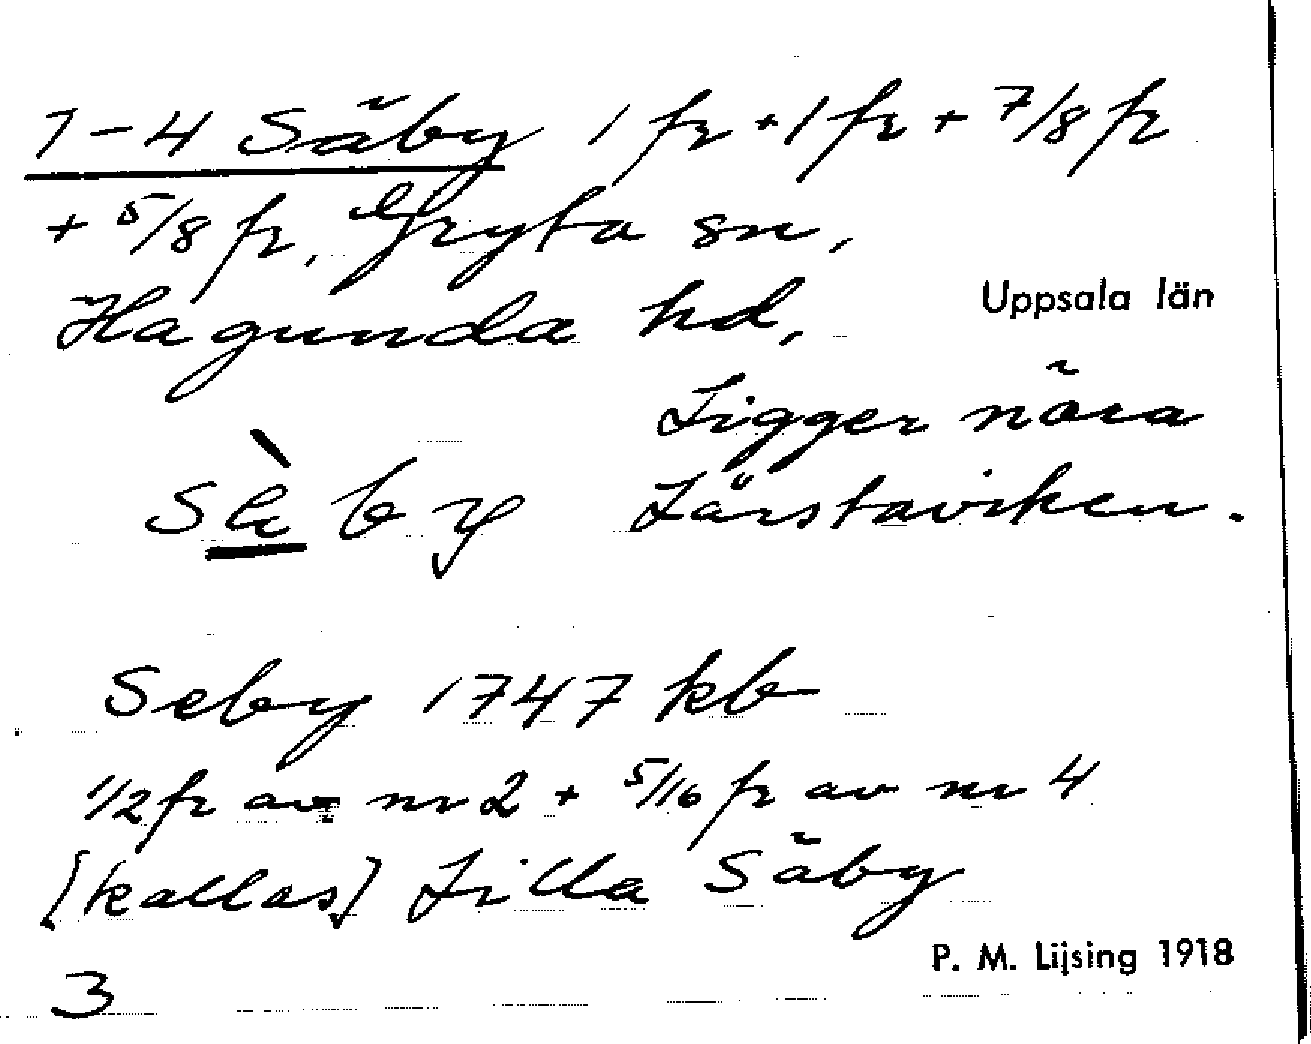 1-4 Säby 1 fr + 1 fr + 7/8 fr
+ 5/8 fr, Gryta sn,
Hagunda hd,
Uppsala län
Ligger nära
Sè by
Lårstaviken.
Seby 1747 kb
1/2 fr av nr 2 + 5/16 fr av nr 4
[kallas] Lilla Säby
P. M. Lijsing 1918
3